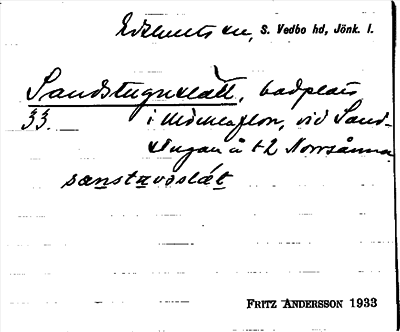 Edshults sn, S. Vedbo hd, Jönk. l.
Sandstugnslätt, badplats
33. i Mycklaflon, vid Sand-
stugan å t2 Norrsånna
sanstavəslät
FRITZ ANDERSSON 1933